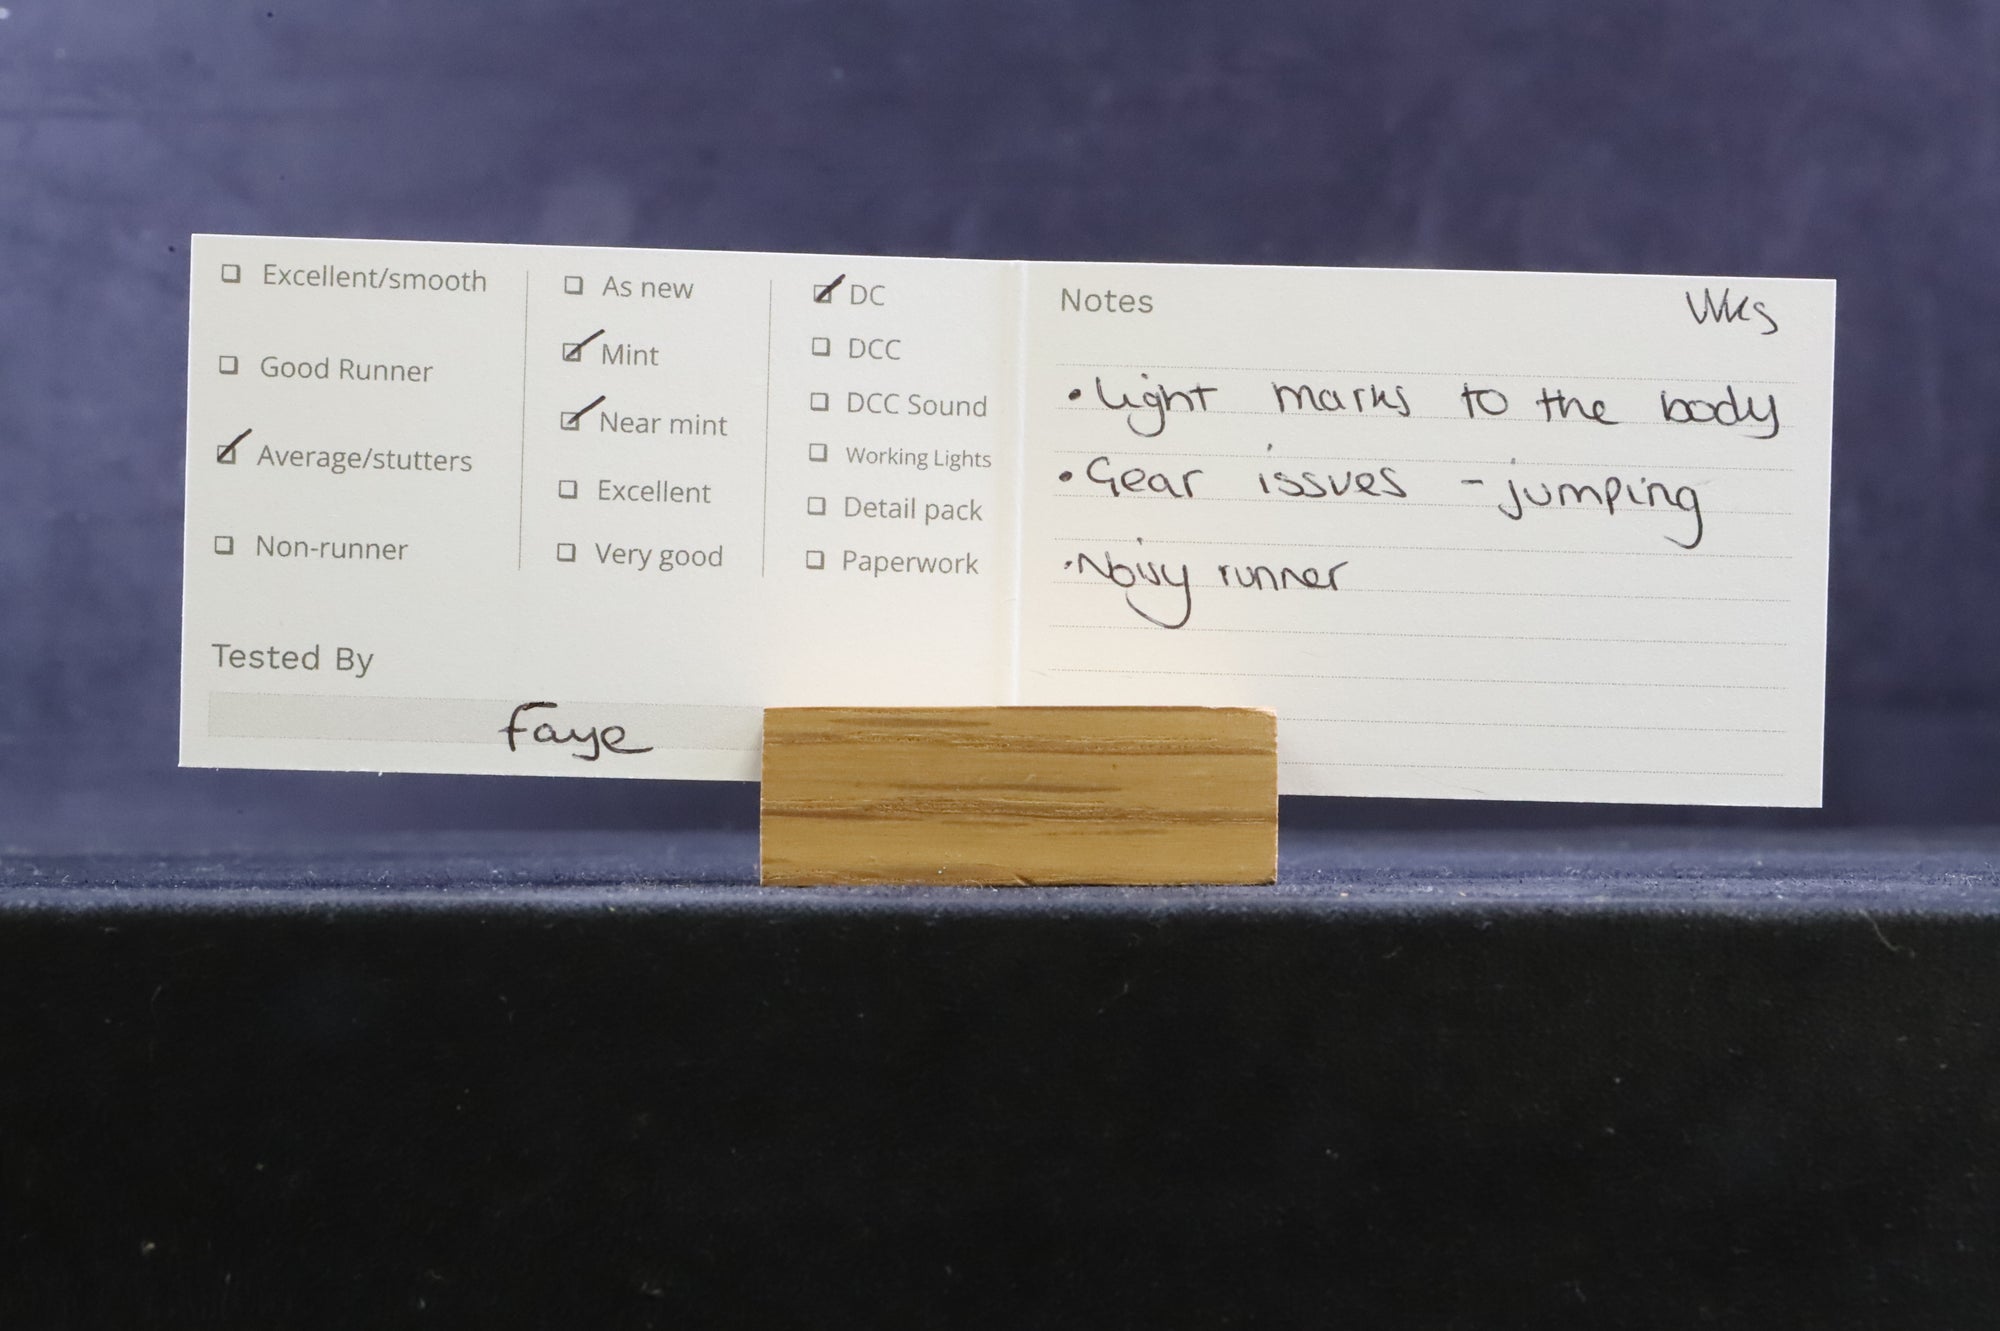 ☐ Excellent/smooth
☐ Good Runner
☑ Average/stutters
☐ Non-runner
☐ As new
☑ Mint
☑ Near mint
☐ Excellent
☐ Very good
☑ DC
☐ DCC
☐ DCC Sound
☐ Working Lights
☐ Detail pack
☐ Paperwork
Tested By
Faye
Notes
• Light marks to the body
• Gear issues - jumping
• Noisy runner